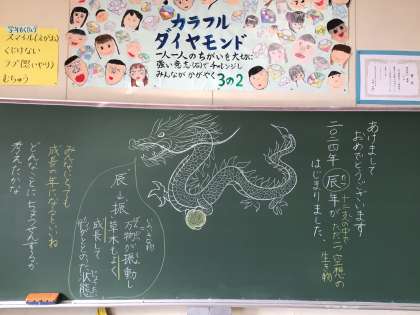 カラフル
ダイヤモンド
一人一人のちがいを大切に
強い意志(石)でチャレンジし
みんなが かがやく 3の2
学年だより
スマイル(えがお)
くじけない
ラブ(思いやり)
むちゅう
あけまして
おめでとうございます
二〇二四年 辰年が
はじまりました。
十二支の中で
ただ一つ空想の
生き物
辰→振
万物が振動し
草木もよく
成長して
形がととのった状態
みんなとっても
成長の年になるといいね
どんなことにちょうせんするか
考えたかな